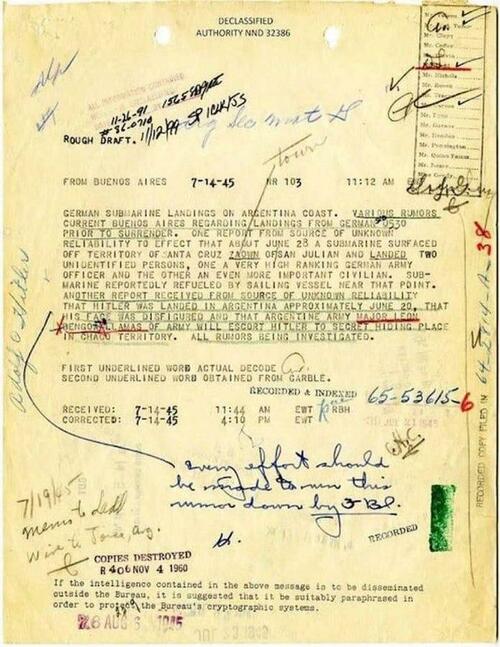 DECLASSIFIED
AUTHORITY NND 32386
ROUGH DRAFT.
FROM BUENOS AIRES 7-14-45 NR 103 11:12 AM
GERMAN SUBMARINE LANDINGS ON ARGENTINA COAST. VARIOUS RUMORS
CURRENT BUENOS AIRES REGARDING LANDINGS FROM GERMAN U530
PRIOR TO SURRENDER. ONE REPORT FROM SOURCE OF UNKNOWN
RELIABILITY TO EFFECT THAT ABOUT JUNE 28 A SUBMARINE SURFACED
OFF TERRITORY OF SANTA CRUZ ZAOWN OF SAN JULIAN AND LANDED TWO
UNIDENTIFIED PERSONS, ONE A VERY HIGH RANKING GERMAN ARMY
OFFICER AND THE OTHER AN EVEN MORE IMPORTANT CIVILIAN. SUB-
MARINE REPORTEDLY REFUELED BY SAILING VESSEL NEAR THAT POINT.
ANOTHER REPORT RECEIVED FROM SOURCE OF UNKNOWN RELIABILITY
THAT HITLER WAS LANDED IN ARGENTINA APPROXIMATELY JUNE 20, THAT
HIS FACE WAS DISFIGURED AND THAT ARGENTINE ARMY MAJOR LEON
BENGOA LLAMAS OF ARMY WILL ESCORT HITLER TO SECRET HIDING PLACE
IN CHACO TERRITORY. ALL RUMORS BEING INVESTIGATED.
FIRST UNDERLINED WORD ACTUAL DECODE
SECOND UNDERLINED WORD OBTAINED FROM GARBLE.
RECORDED & INDEXED 65-53615-6
RECEIVED: 7-14-45 11:44 AM EWT RBH
CORRECTED: 7-14-45 4:10 PM EWT
Every effort should
be made to run this
rumor down by FBI.
H.
RECORDED
7/19/45
COPIES DESTROYED
R 406 NOV 4 1960
If the intelligence contained in the above message is to be disseminated
outside the Bureau, it is suggested that it be suitably paraphrased in
order to protect the Bureau's cryptographic systems.
AUG 1945
town
Adolf Hitler
RECORDED COPY FILED IN